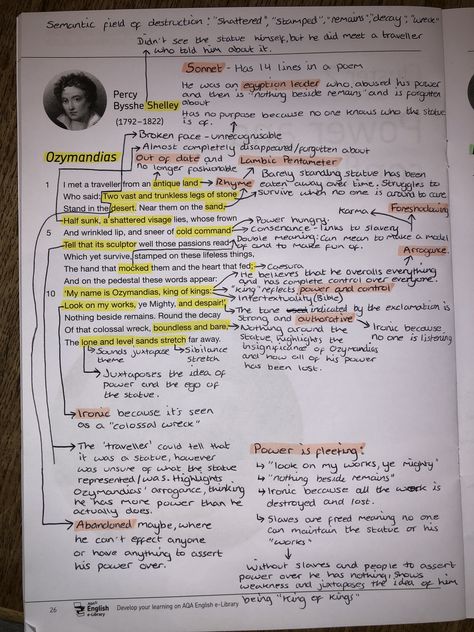 Semantic field of destruction: "shattered", "stamped", "remains", "decay", "wreck"
Didn't see the statue himself, but he did meet a traveller
who told him about it.
Sonnet - Has 14 lines in a poem
He was an egyption leader who abused his power
and then is "nothing beside remains" and is forgotten
about
Has no purpose because no one knows who the statue
is of.
Percy
Bysshe Shelley
(1792–1822)
Broken face - unrecognisable
Almost completely disappeared/forgotten about
Ozymandias
Out of date and
no longer fashionable
Lambic Pentameter
Barely standing statue has been
1 I met a traveller from an antique land
Rhyme
eaten away over time. Struggles to
Who said: Two vast and trunkless legs of stone
survive when no one is around to care
Stand in the desert. Near them on the sand,
Karma
Foreshadowing
Half sunk, a shattered visage lies, whose frown
Power hungry.
5 And wrinkled lip, and sneer of cold command,
Consenance - links to slavery
Tell that its sculptor well those passions read
Double meaning: Can mean to make a model
of and to make fun of.
Arrogance
Which yet survive, stamped on these lifeless things,
The hand that mocked them and the heart that fed;
Caesura
He believes that he overalls everything
and has complete control over everyone.
And on the pedestal these words appear:
10 'My name is Ozymandias, king of kings:
"king" reflects power and control
Look on my works, ye Mighty, and despair!'
Intertextuality (Bible)
Nothing beside remains. Round the decay
The tone used indicated by the exclamation is
strong and authorative
Of that colossal wreck, boundless and bare,
Nothing around the
statue, highlights the
insignificance of Ozymandias
and how all of his power
has been lost.
Ironic because
no one is listening
The lone and level sands stretch far away.
Sounds juxtapose
theme
Sibilance
stretch
Juxtaposes the idea of
power and the ego of
the statue.
Ironic because it's seen
as a "colossal wreck"
The 'traveller' could tell that
it was a statue, however
was unsure of what the statue
represented/was. Highlights
Ozymandias' arrogance, thinking
he has more power than he
actually does.
Abandoned maybe, where
he can't effect anyone
or have anything to assert
his power over.
Power is fleeting:
"look on my works, ye mighty"
"nothing beside remains"
Ironic because all the work is
destroyed and lost.
Slaves are freed meaning no one
can maintain the statue or his
"works"
Without slaves and people to assert
power over he has nothing, shows
weakness and juxtaposes the idea of him
being "King of Kings"
26
AQA
English
e-Library
Develop your learning on AQA English e-Library